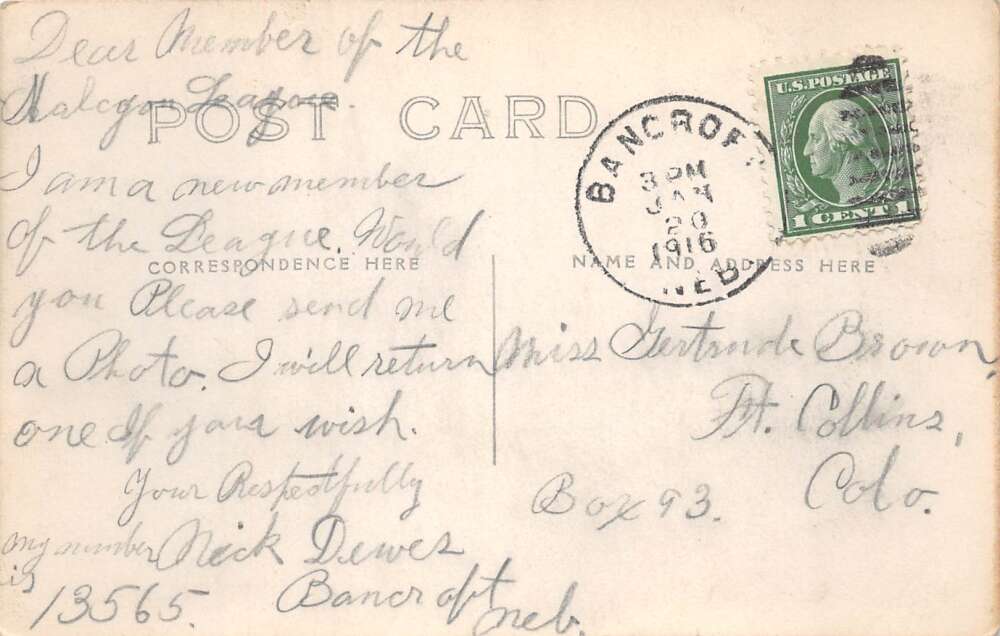 Dear Member of the
Halcyon League.
POST CARD
I am a new member
of the League. Would
CORRESPONDENCE HERE
you Please send me
a Photo. I will return
one If you wish.
Your Respectfully
my number Nick Dewez
is
13565. Bancroft
Neb.
U.S. POSTAGE
1 CENT 1
BANCROFT
3 PM
JAN
20
1916
NEB.
NAME AND ADDRESS HERE
Miss Gertrude Brown,
Ft. Collins,
Colo.
Box 93.